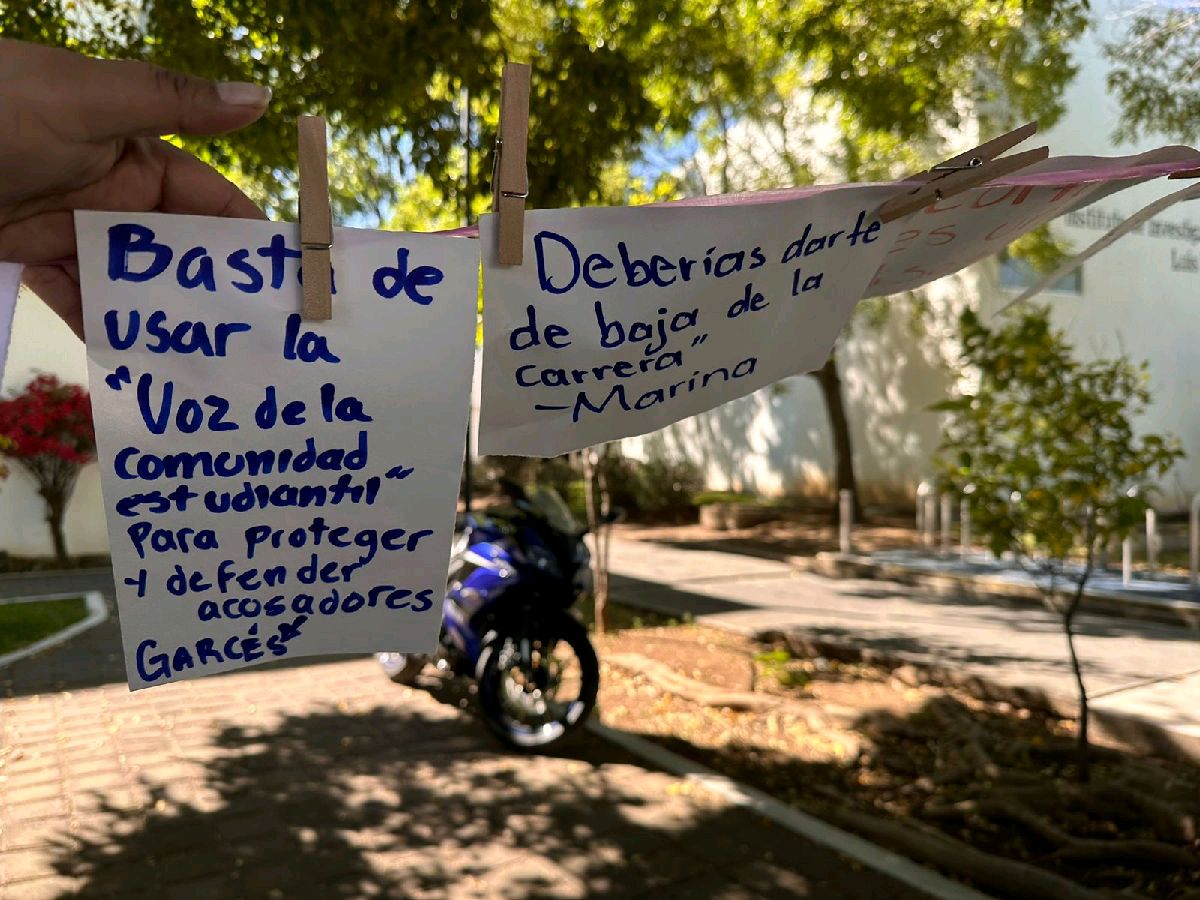 Basta de
usar la
"Voz de la
comunidad
estudiantil"
Para proteger
y defender
acosadores
GARCÉS*
Deberías darte
de baja de la
carrera"
-Marina